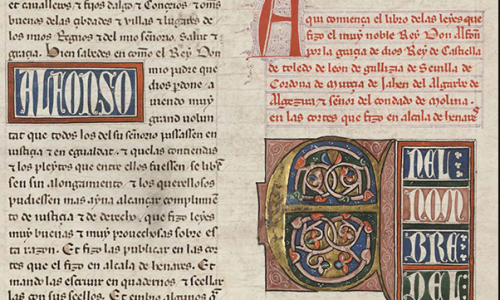 et caualleros & fijos dalgo & Conceios & omes
buenos de las çibdades & villas & lugares de
los mios Regnos & del mio señorio. Salut &
graçia. Bien sabedes en commo el Rey Don
ALFONSO
mio padre que
dios perdone a
uiendo muy
grand uolun
tat que todos los del su señorio passassen en
iustiçia & en egualdat & que las contiendas
& los pleytos que entre ellos fuessen se libr
sen sin alongamiento & los querellosos
pudiessen mas ayna alcançar complimien
to de iustiçia & de derecho, que fizo leyes
muy buenas & muy prouechosas sobre es
ta razon. Et fizo las publicar en las cor
tes que el fizo en alcala de henares. Et
mando las escriuir en quadernos & seellar
las con sus seellos. Et embio algunos
Aqui comiença el libro delas leyes que
fizo el muy noble Rey Don Alfon
por la graçia de dios Rey de Castiella
de toledo de leon de gallizia de Seuilla de
Cordoua de murçia de Jahen del Algarbe de
Algezira & señor del condado de molina.
en las cortes que fizo en alcala de henares
E
NEL
NON
BRE
DEL